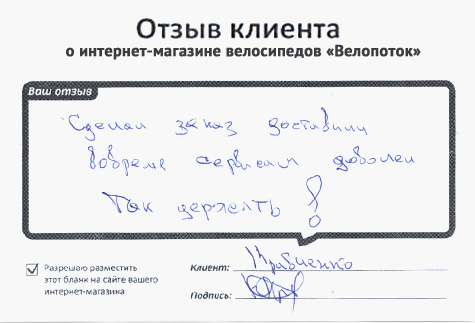 Отзыв клиента
о интернет-магазине велосипедов «Велопоток»
Ваш отзыв
Сделал заказ доставили
вовремя сервисом доволен
Так держать!
Клиент: Кравченко
Разрешаю разместить
этот бланк на сайте вашего
интернет-магазина
Подпись: